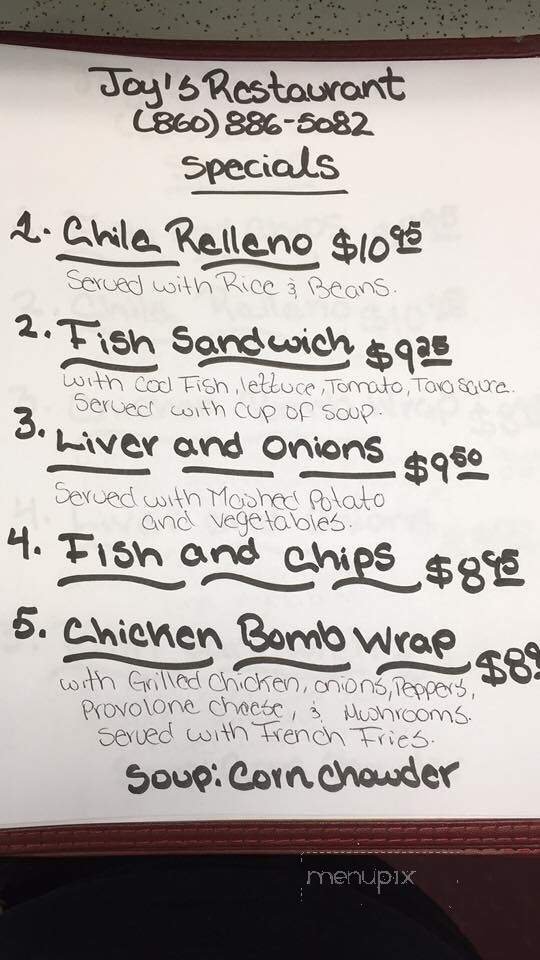 Joy's Restaurant
(860) 886-5082
Specials
1. Chile Relleno $10.95
Served with Rice & Beans.
2. Fish Sandwich $9.25
with Cod Fish, lettuce, Tomato, Tara saure.
Served with cup of soup.
3. Liver and Onions $9.50
Served with Mashed Potato
and vegetables.
4. Fish and Chips $8.95
5. Chicken Bomb Wrap $8
with Grilled Chicken, onions, Peppers,
Provolone cheese, & Mushrooms.
Served with French Fries.
Soup: Corn Chowder
menupix